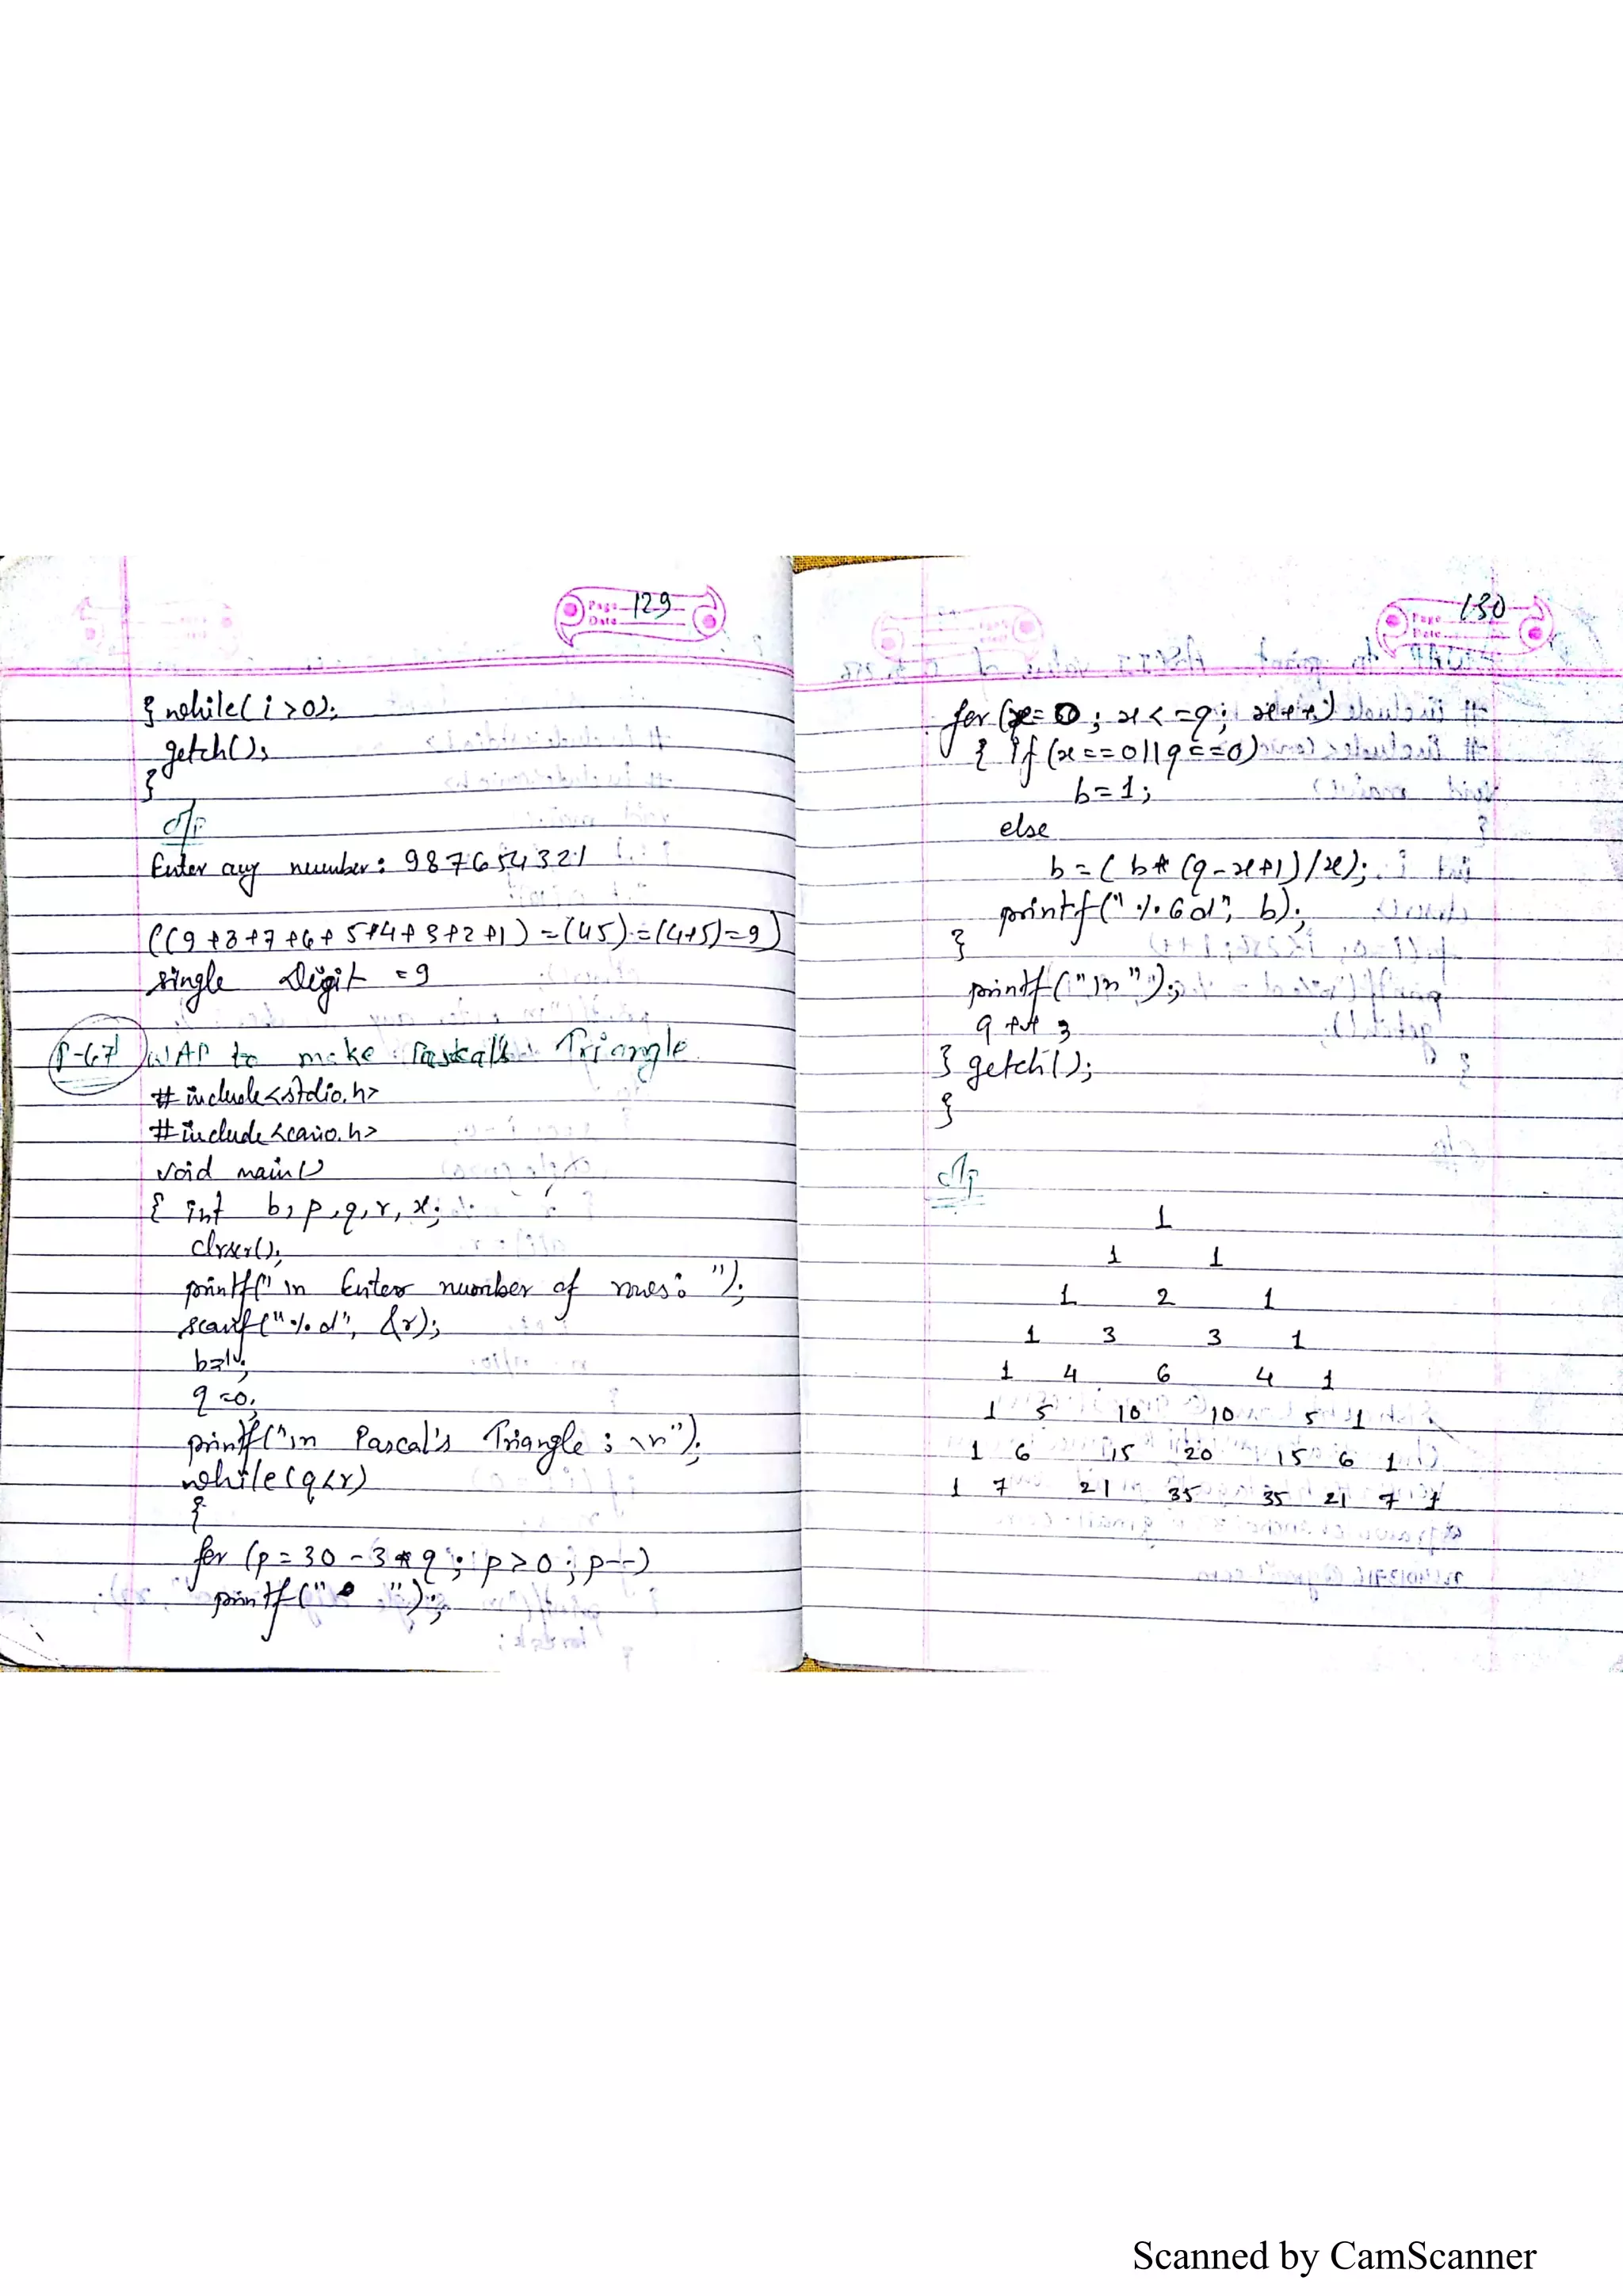 Page 129
Date
} while(i>0);
getch();
}
o/p
Enter any number: 987654321
((9+8+7+6+5+4+3+2+1)=(45)=(4+5)=9)
single Digit =9
P-67 WAP to make Paskal's Triangle
#include<stdio.h>
#include<conio.h>
void main()
{ int b,p,q,r,x;
clrscr();
printf("\n Enter number of rows: ");
scanf("%d", &r);
b=1;
q=0;
printf("\n Pascal's Triangle : \n");
while(q<r)
{
for (p=30-3*q; p>0; p--)
printf(" ");
Page 130
Date
for (x=0; x<=q; x++)
{ if (x==0||q==0)
b=1;
else
b=(b*(q-x+1)/x);
printf("%6d", b);
}
printf("\n");
q++;
} getch();
}
o/p
1
1 1
1 2 1
1 3 3 1
1 4 6 4 1
1 5 10 10 5 1
1 6 15 20 15 6 1
1 7 21 35 35 21 7 1
Scanned by CamScanner